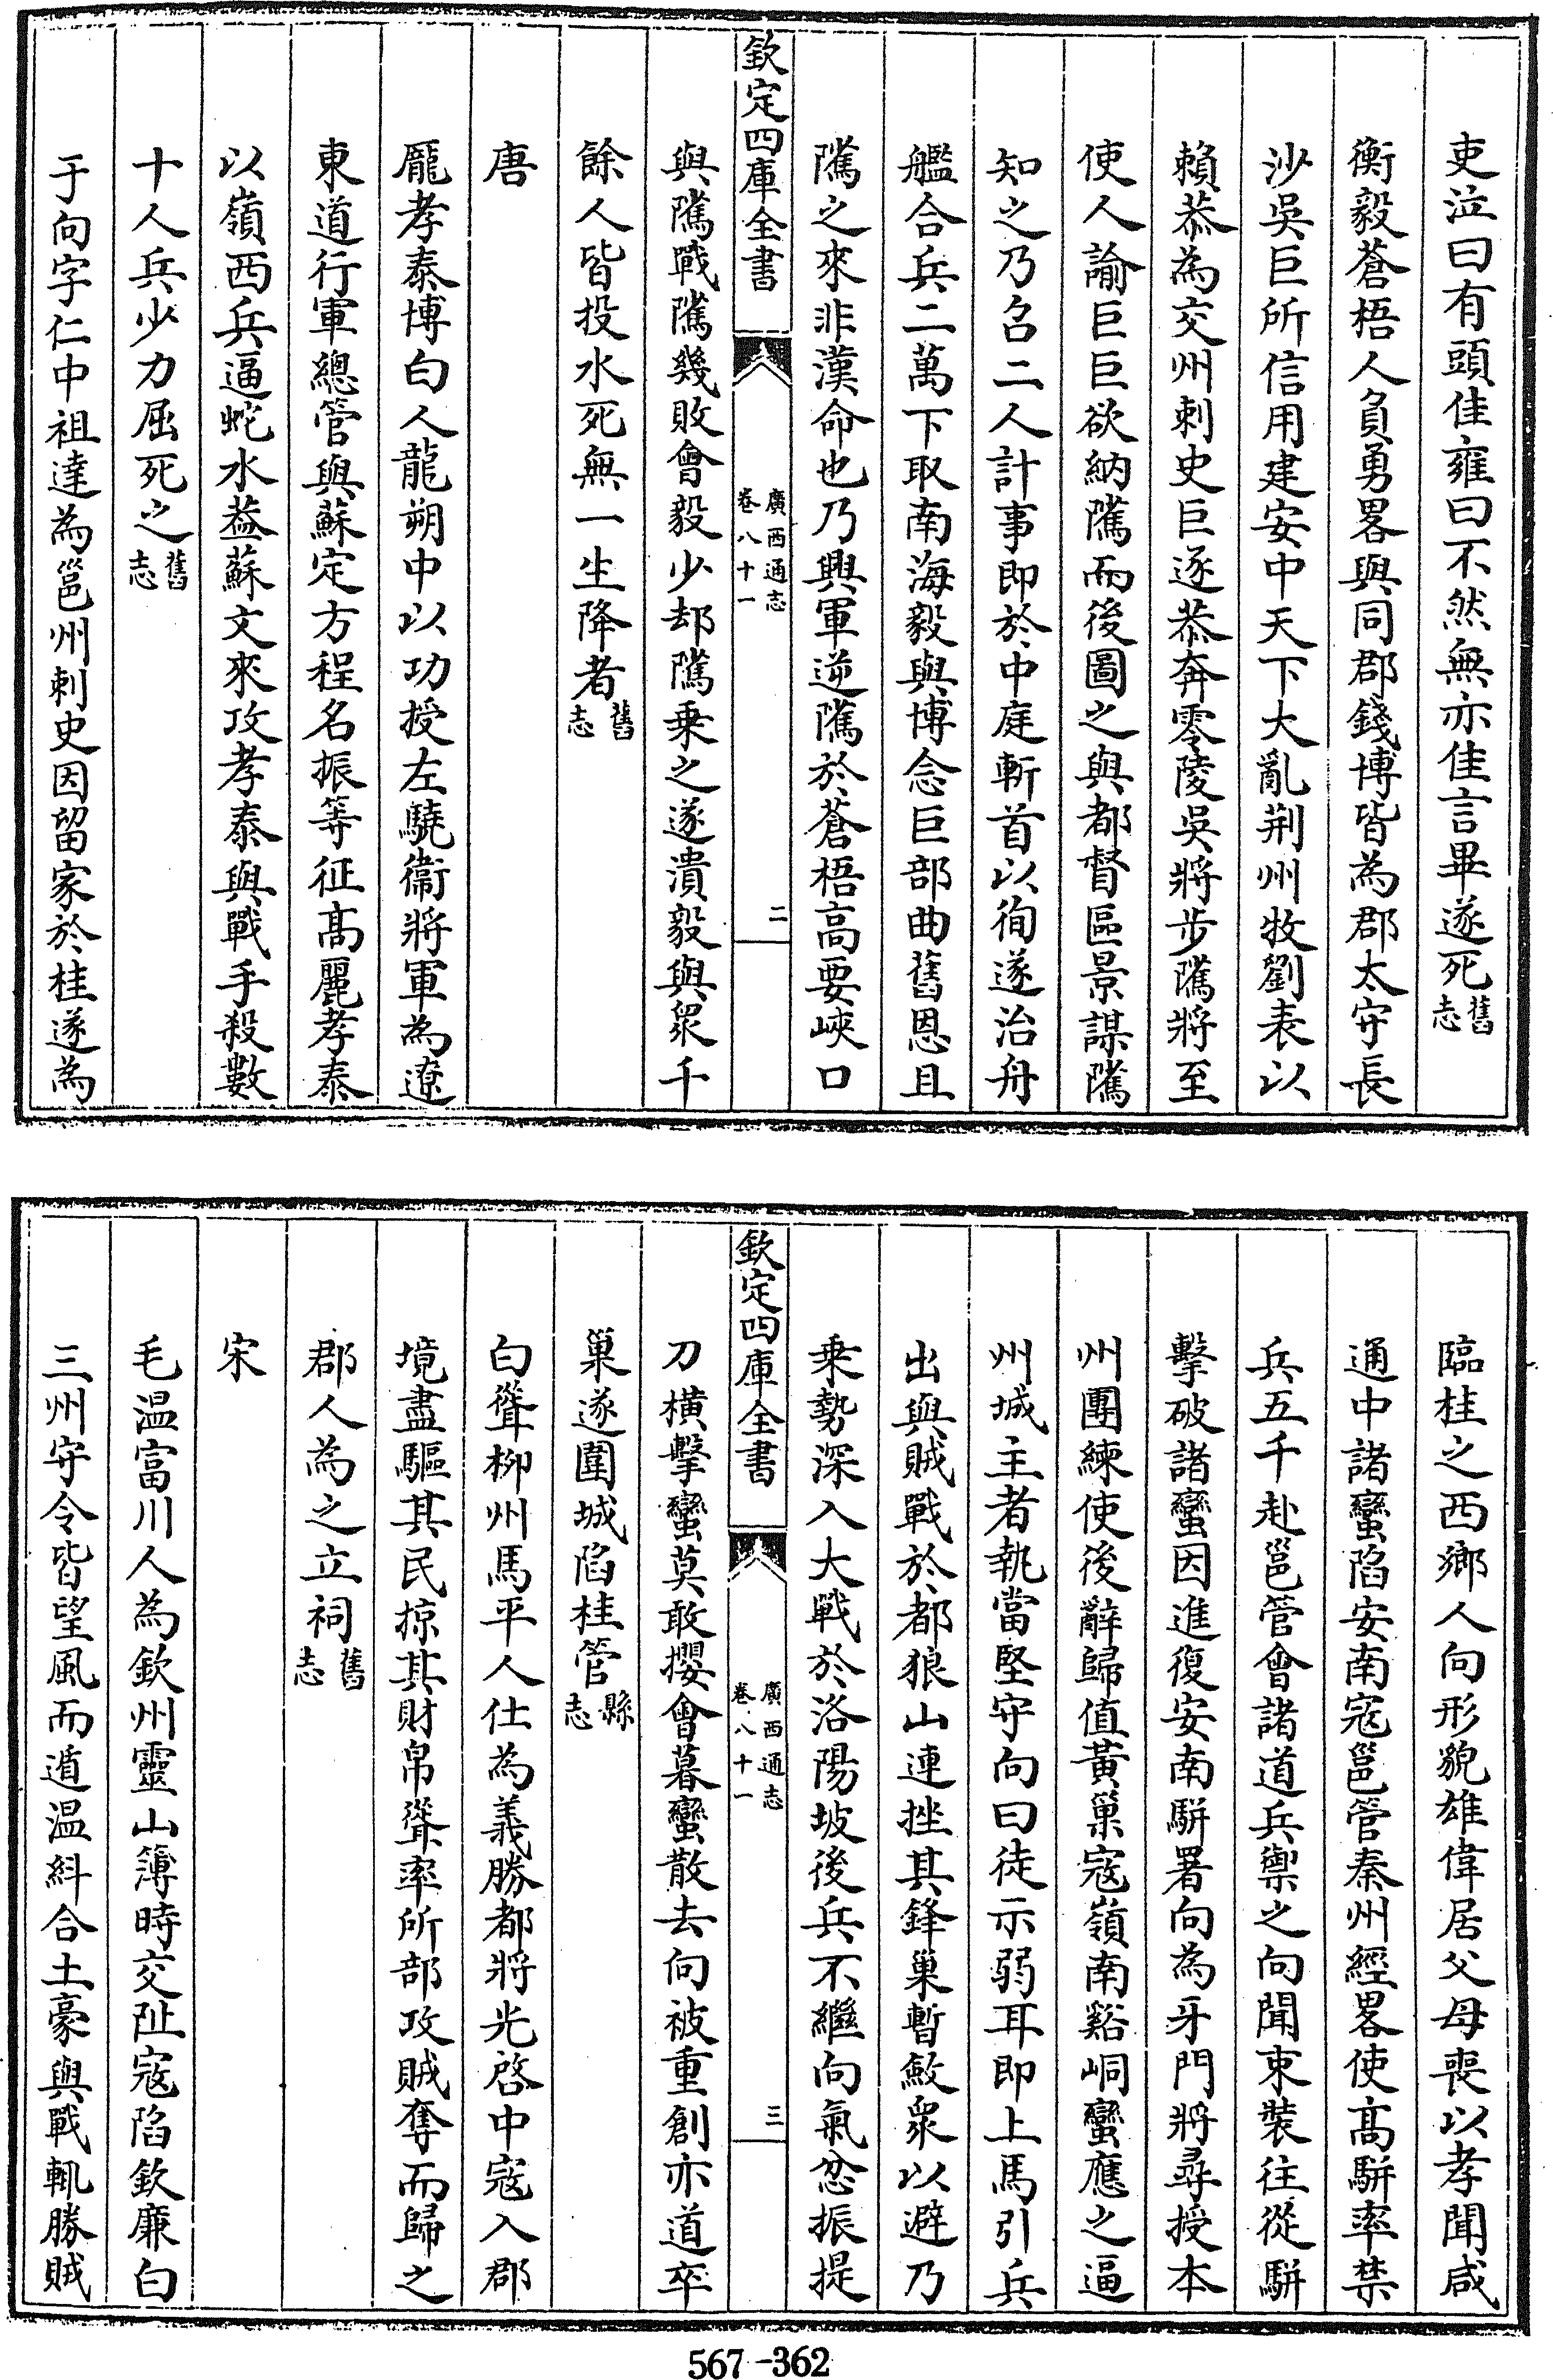 吏泣曰有頭佳雍曰不然無亦佳言畢遂死舊志
衡毅蒼梧人負勇畧與同郡錢博皆為郡太守長
沙吳巨所信用建安中天下大亂荆州牧劉表以
賴恭為交州刺史巨逐恭奔零陵吳將步隲將至
使人諭巨巨欲納隲而後圖之與都督區景謀隲
知之乃召二人計事即於中庭斬首以徇遂治舟
艦合兵二萬下取南海毅與博念巨部曲舊恩且
隲之來非漢命也乃興軍逆隲於蒼梧高要峽口
欽定四庫全書
廣西通志
卷八十一
二
與隲戰隲幾敗會毅少却隲乗之遂潰毅與衆千
餘人皆投水死無一生降者舊志
唐
龎孝泰博白人龍朔中以功授左驍衞將軍為遼
東道行軍總管與蘇定方程名振等征髙麗孝泰
以嶺西兵逼蛇水葢蘇文來攻孝泰與戰手殺數
十人兵少力屈死之舊志
于向字仁中祖達為邕州刺史因留家於桂遂為
臨桂之西鄉人向形貌雄偉居父母喪以孝聞咸
通中諸蠻陷安南寇邕管秦州經畧使髙駢率禁
兵五千赴邕管會諸道兵禦之向聞束裝往從駢
擊破諸蠻因進復安南駢署向為牙門將尋授本
州團練使後辭歸值黃巢寇嶺南谿峒蠻應之逼
州城主者執當堅守向曰徒示弱耳即上馬引兵
出與賊戰於都狼山連挫其鋒巢暫斂衆以避乃
乗勢深入大戰於洛陽坡後兵不繼向氣忿振提
欽定四庫全書
廣西通志
卷八十一
三
刀橫擊蠻莫敢攖會暮蠻散去向被重創亦道卒
巢遂圍城陷桂管縣志
白聳柳州馬平人仕為義勝都將光啓中寇入郡
境盡驅其民掠其財帛聳率所部攻賊奪而歸之
郡人為之立祠舊志
宋
毛温富川人為欽州靈山簿時交阯寇陷欽廉白
三州守令皆望風而遁温紏合土豪與戰輒勝賊
567-362